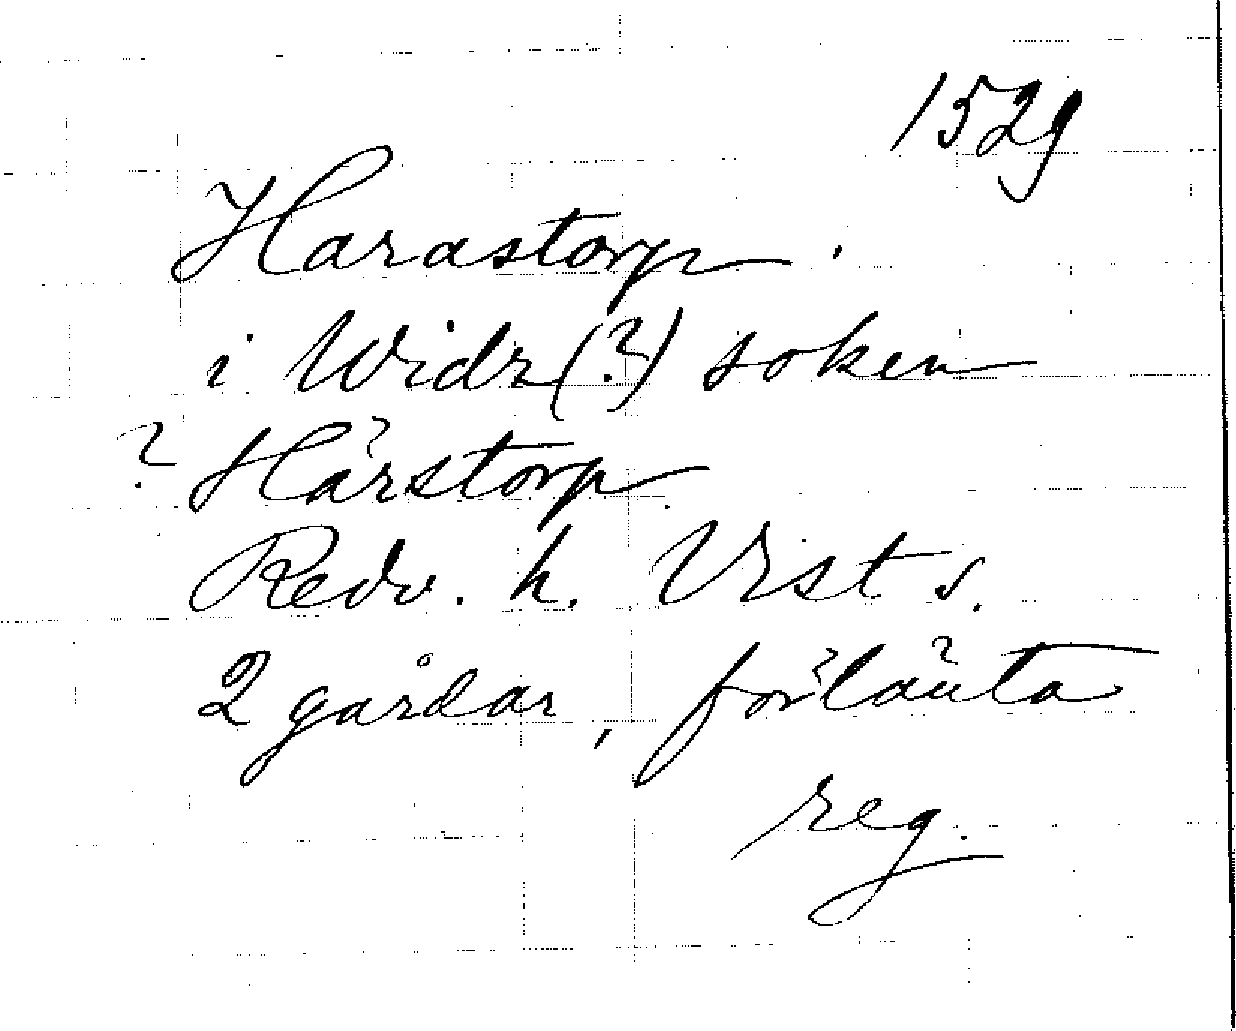 1529
Harastorp.
i Widr(?) soken
? Härstorp
Redv. h. Vist s.
2 gårdar, förlänta
reg.